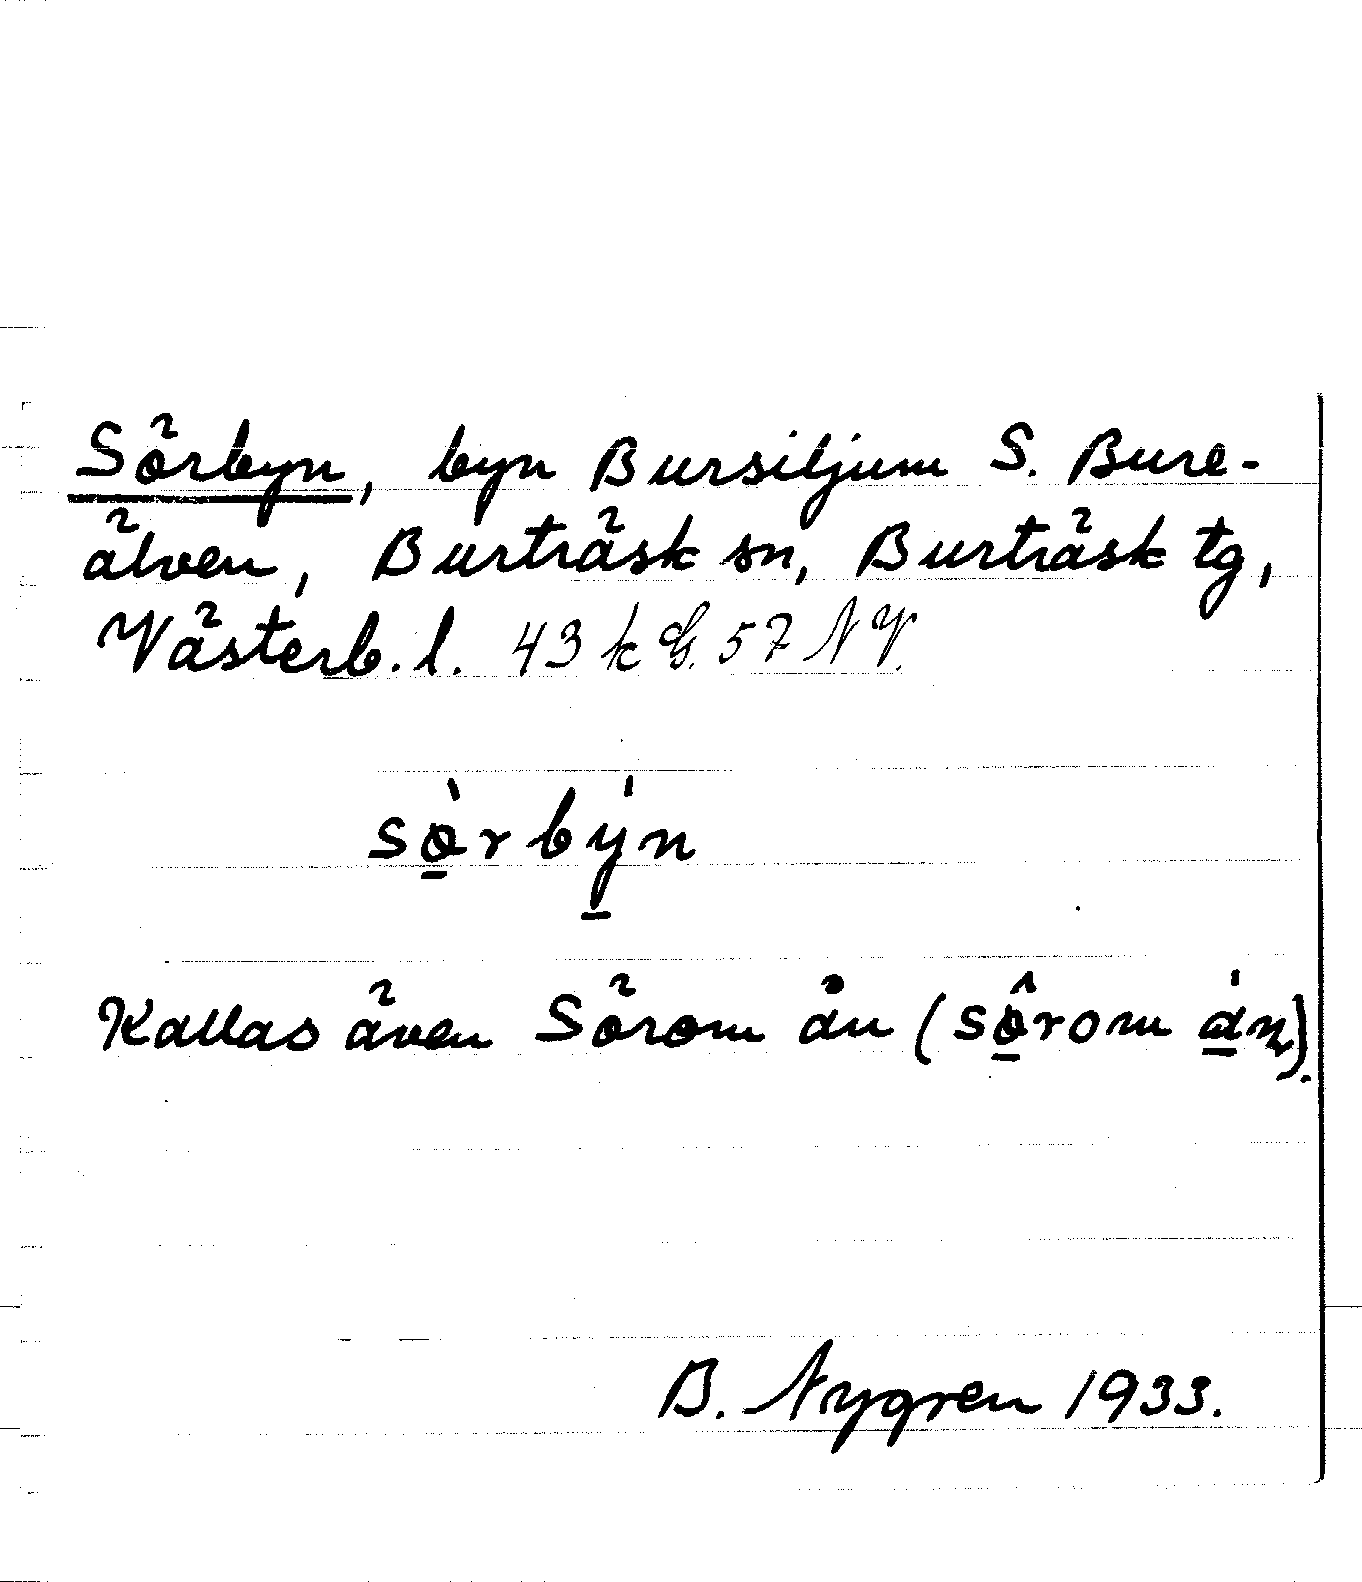 Sörbyn, byn Bursiljum S. Bure-
älven, Burträsk sn, Burträsk tg,
Västerb. l. 43 k G. 57 N V.
sø̱̀rbý̱n
Kallas även Sörom ån (sø̱̂rom á̱n).
B. Nygren 1933.